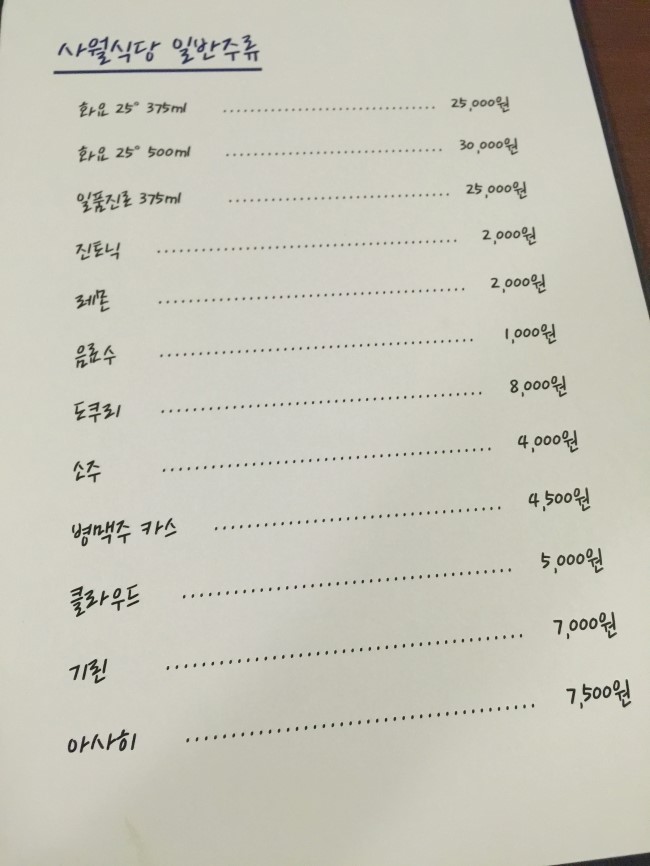 사월식당 일반주류
화요 25° 375ml ........................... 25,000원
화요 25° 500ml ........................... 30,000원
일품진로 375ml ........................... 25,000원
진토닉 ........................... 2,000원
레몬 ........................... 2,000원
음료수 ........................... 1,000원
도쿠리 ........................... 8,000원
소주 ........................... 4,000원
병맥주 카스 ........................... 4,500원
클라우드 ........................... 5,000원
기린 ........................... 7,000원
아사히 ........................... 7,500원